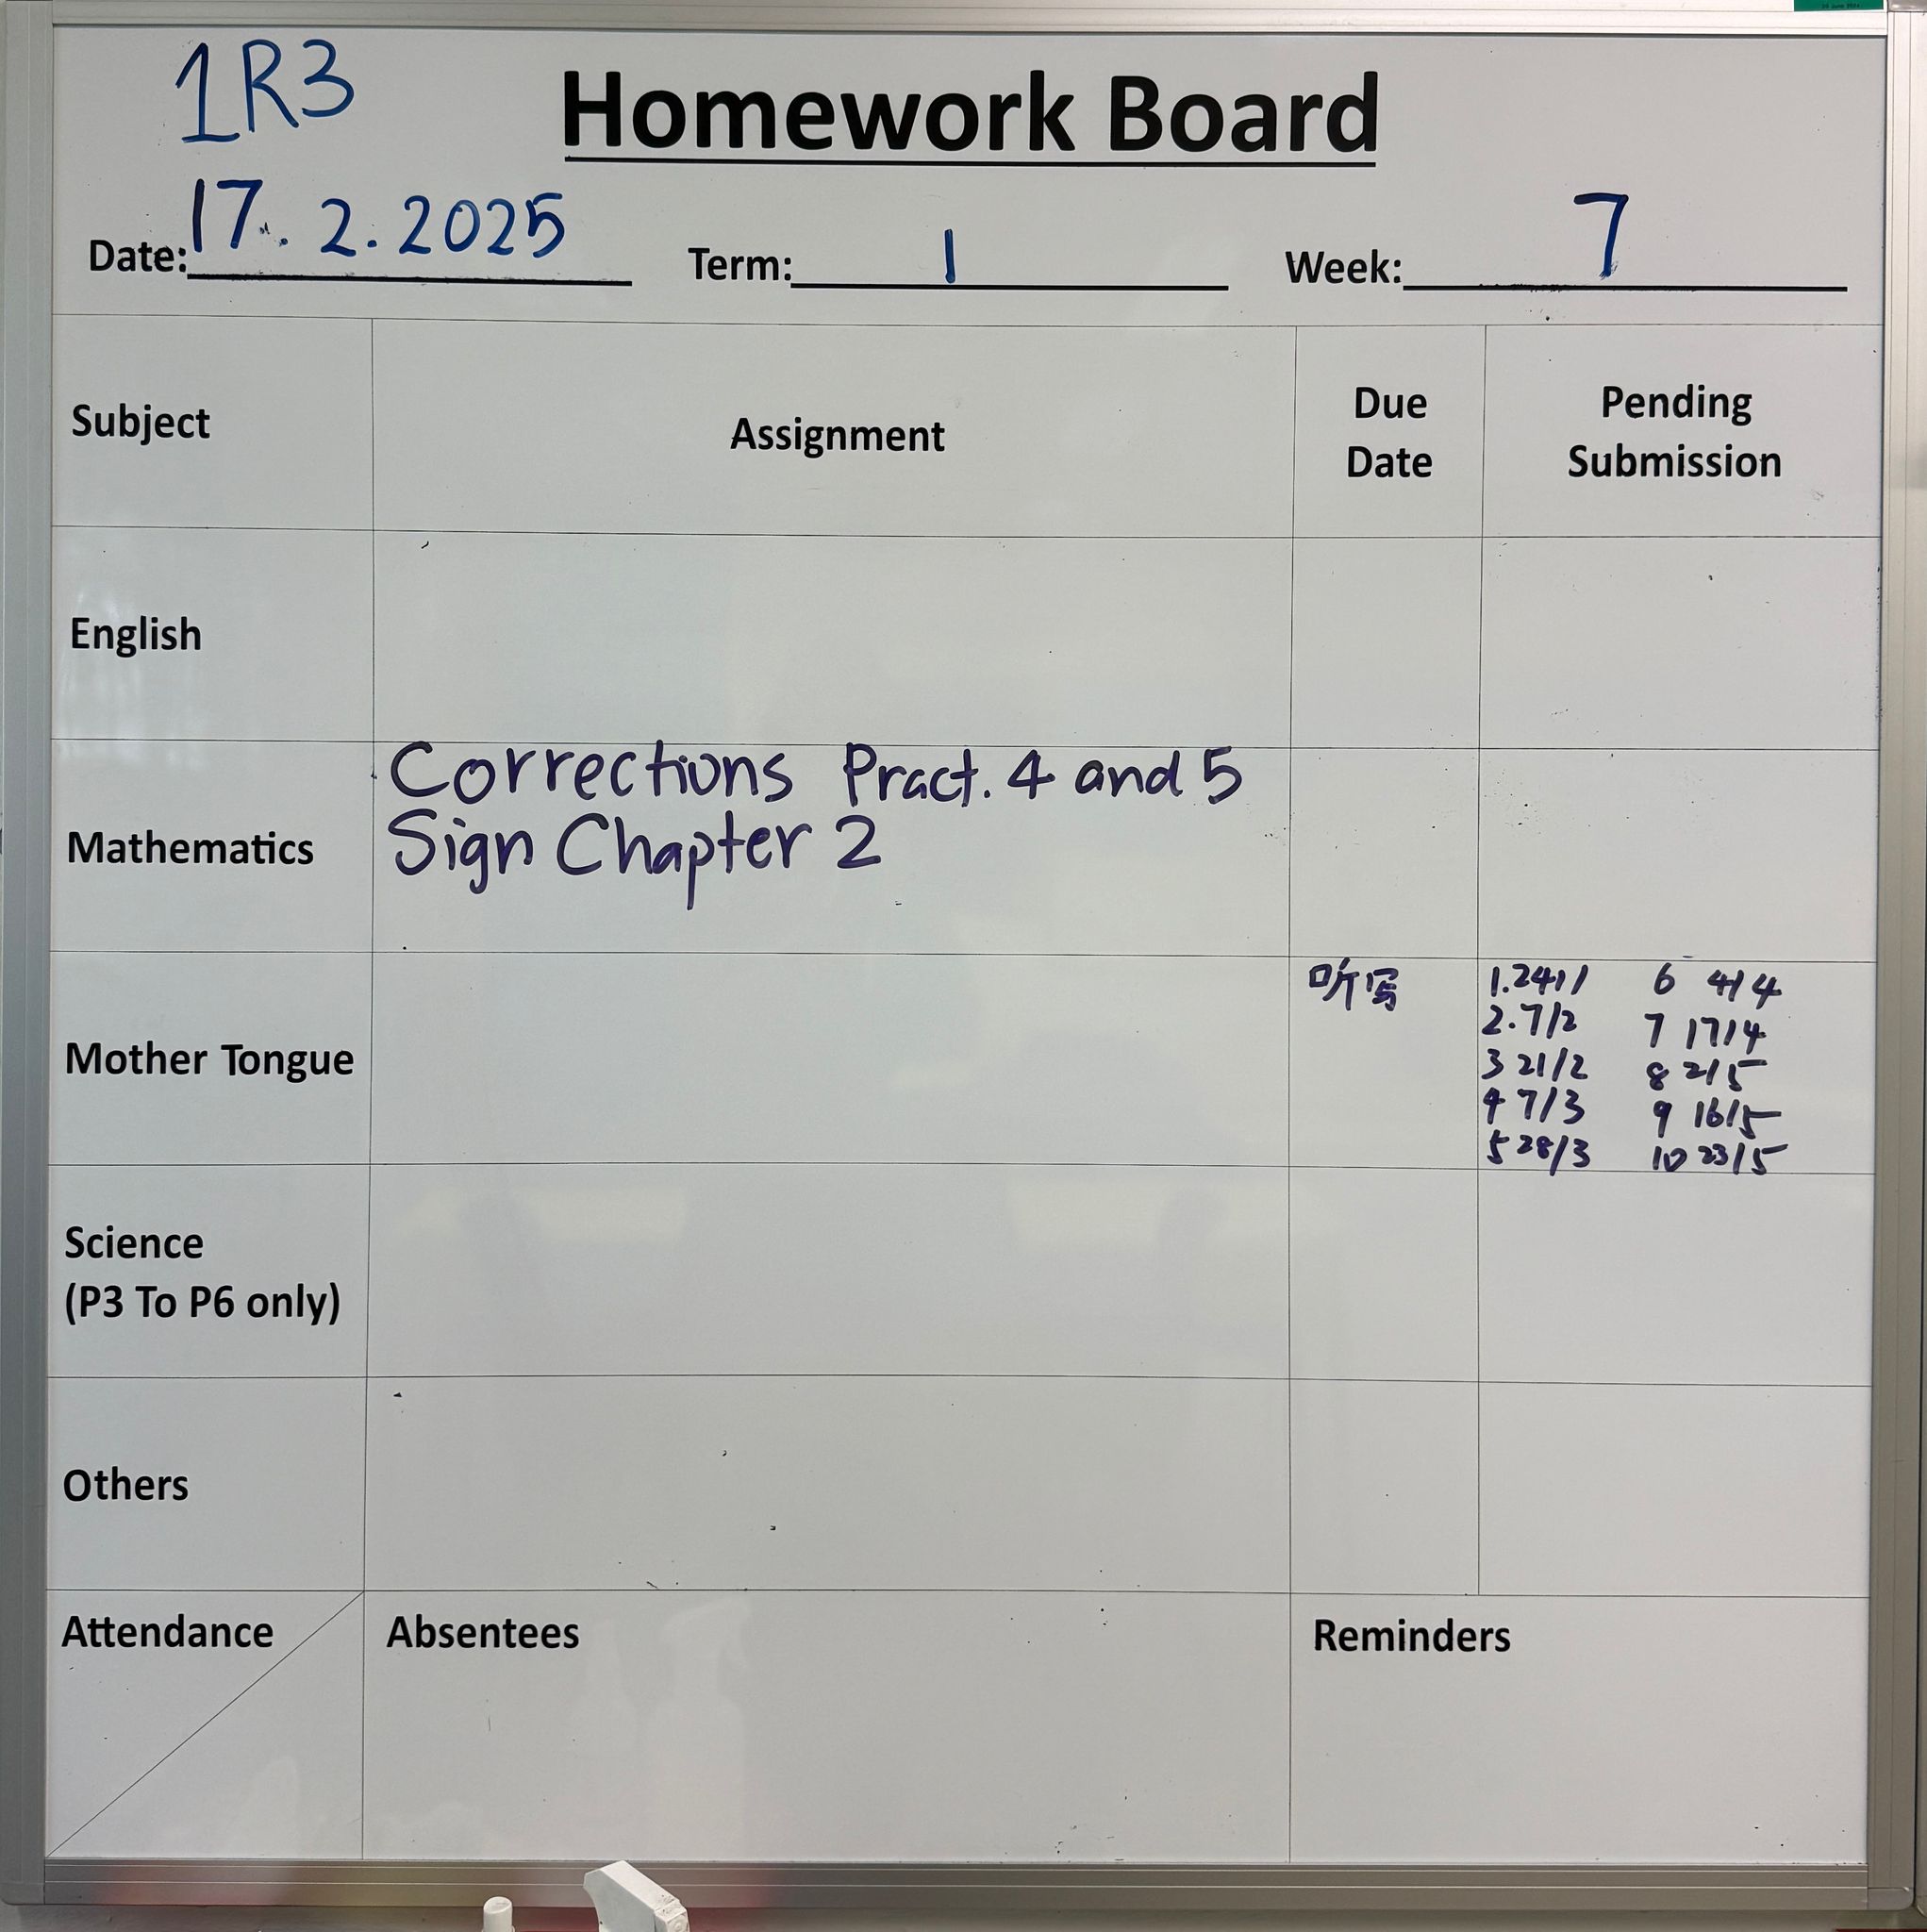 1R3
Homework Board
Date: 17. 2. 2025 Term: 1 Week: 7
Subject Assignment Due Date Pending Submission
English
Mathematics
Corrections Pract. 4 and 5
Sign Chapter 2
Mother Tongue
听写
1.24/1 6 4/4
2.7/2 7 17/4
3 21/2 8 2/5
4 7/3 9 16/5
5 28/3 10 23/5
Science
(P3 To P6 only)
Others
Attendance Absentees Reminders